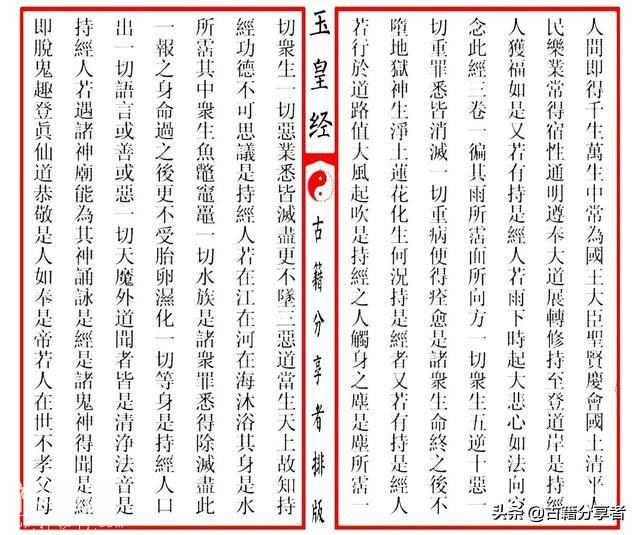 人間即得千生萬生中常為國王大臣聖賢慶會國土清平人
民樂業常得宿性通明遵奉大道展轉修持至登道岸是持經
人獲福如是又若有持是經人若雨下時起大悲心如法向空
念此經三卷一徧其雨所霑面所向方一切衆生五逆十惡一
切重罪悉皆消滅一切重病便得痊愈是諸衆生命終之後不
墮地獄神生淨土蓮花化生何況持是經者又若有持是經人
若行於道路值大風起吹是持經之人觸身之塵是塵所霑一
玉皇经
古籍分享者排版
切衆生一切惡業悉皆滅盡更不墜三惡道當生天上故知持
經功德不可思議是持經人若在江在河在海沐浴其身是水
所霑其中衆生魚鼈黿鼉一切水族是諸衆罪悉得除滅盡此
一報之身命過之後更不受胎卵濕化一切等身是持經人口
出一切語言或善或惡一切天魔外道聞者皆是清浄法音是
持經人若遇諸神廟能為其神誦詠是經是諸鬼神得聞是經
即脫鬼趣登眞仙道恭敬是人如奉是帝若人在世不孝父母
头条 @古籍分享者